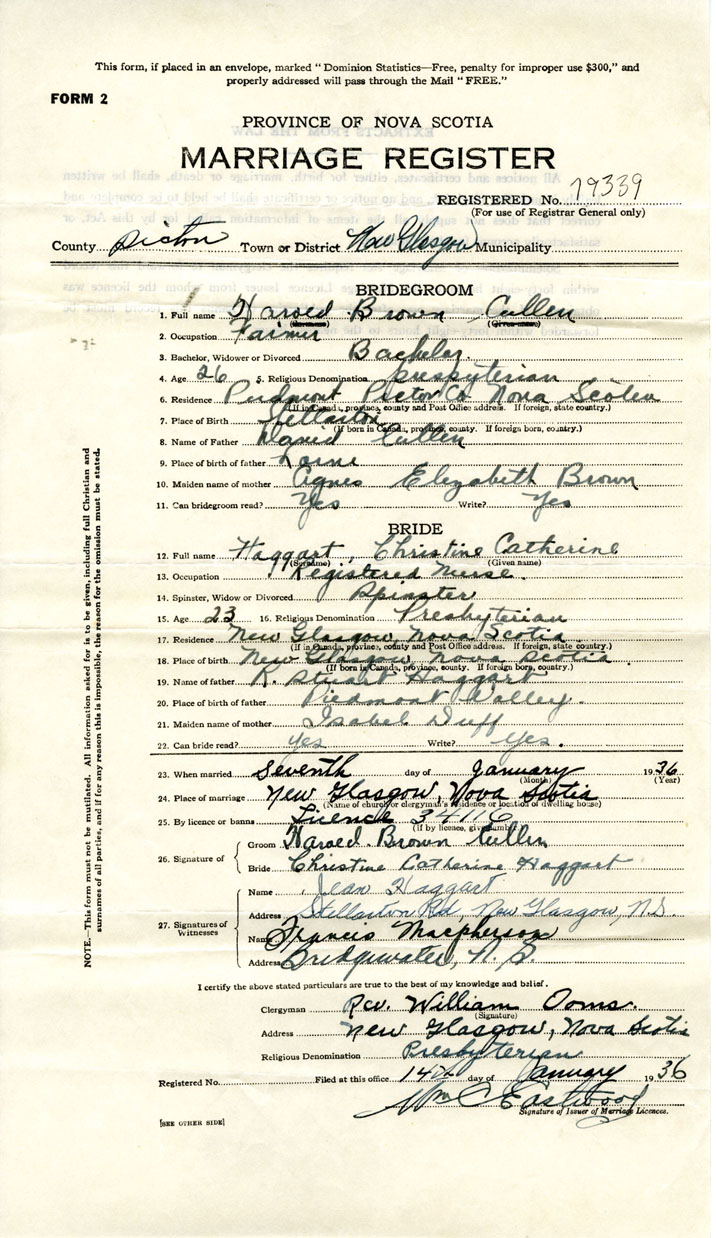 This form, if placed in an envelope, marked "Dominion Statistics—Free, penalty for improper use $300," and
properly addressed will pass through the Mail "FREE."
FORM 2
PROVINCE OF NOVA SCOTIA
MARRIAGE REGISTER
REGISTERED No. 79339
(For use of Registrar General only)
County Pictou Town or District New Glasgow Municipality
BRIDEGROOM
1. Full name Harold Brown Cullen
(Surname) (Given name)
2. Occupation Farmer
3. Bachelor, Widower or Divorced Bachelor
4. Age 26 5. Religious Denomination Presbyterian
6. Residence Piedmont Pictou Co Nova Scotia
(If in Canada, province, county and Post Office address. If foreign, state country.)
7. Place of Birth Stellarton
(If born in Canada, province, county. If foreign born, country.)
8. Name of Father Daniel Cullen
9. Place of birth of father Lorne
10. Maiden name of mother Agnes Elizabeth Brown
11. Can bridegroom read? Yes Write? Yes
BRIDE
12. Full name Haggart, Christine Catherine
(Surname) (Given name)
13. Occupation Registered Nurse.
14. Spinster, Widow or Divorced Spinster
15. Age 23 16. Religious Denomination Presbyterian
17. Residence New Glasgow, Nova Scotia
(If in Canada, province, county and Post Office address. If foreign, state country.)
18. Place of birth New Glasgow, Nova Scotia.
(If born in Canada, province, county. If foreign born, country.)
19. Name of father R. Stuart Haggart
20. Place of birth of father Piedmont Valley.
21. Maiden name of mother Isabel Duff
22. Can bride read? yes Write? yes.
23. When married Seventh day of January 1936
(Month) (Year)
24. Place of marriage New Glasgow, Nova Scotia
(Name of church or clergyman's residence or location of dwelling house)
25. By licence or banns Licence 34116
(If by licence, give number)
26. Signature of
Groom Harold Brown Cullen
Bride Christine Catherine Haggart
27. Signatures of Witnesses
Name Jean Haggart
Address Stellarton Rd, New Glasgow, N.S.
Name Francis Macpherson
Address Bridgewater, N.S.
I certify the above stated particulars are true to the best of my knowledge and belief.
Clergyman Rev. William Ooms.
(Signature)
Address New Glasgow, Nova Scotia
Religious Denomination Presbyterian
Registered No. Filed at this office 14th day of January 1936
Wm C Eastwood
Signature of Issuer of Marriage Licences.
[SEE OTHER SIDE]
NOTE.—This form must not be mutilated. All information asked for is to be given, including full Christian and
surnames of all parties, and if for any reason this is impossible, the reason for the omission must be stated.